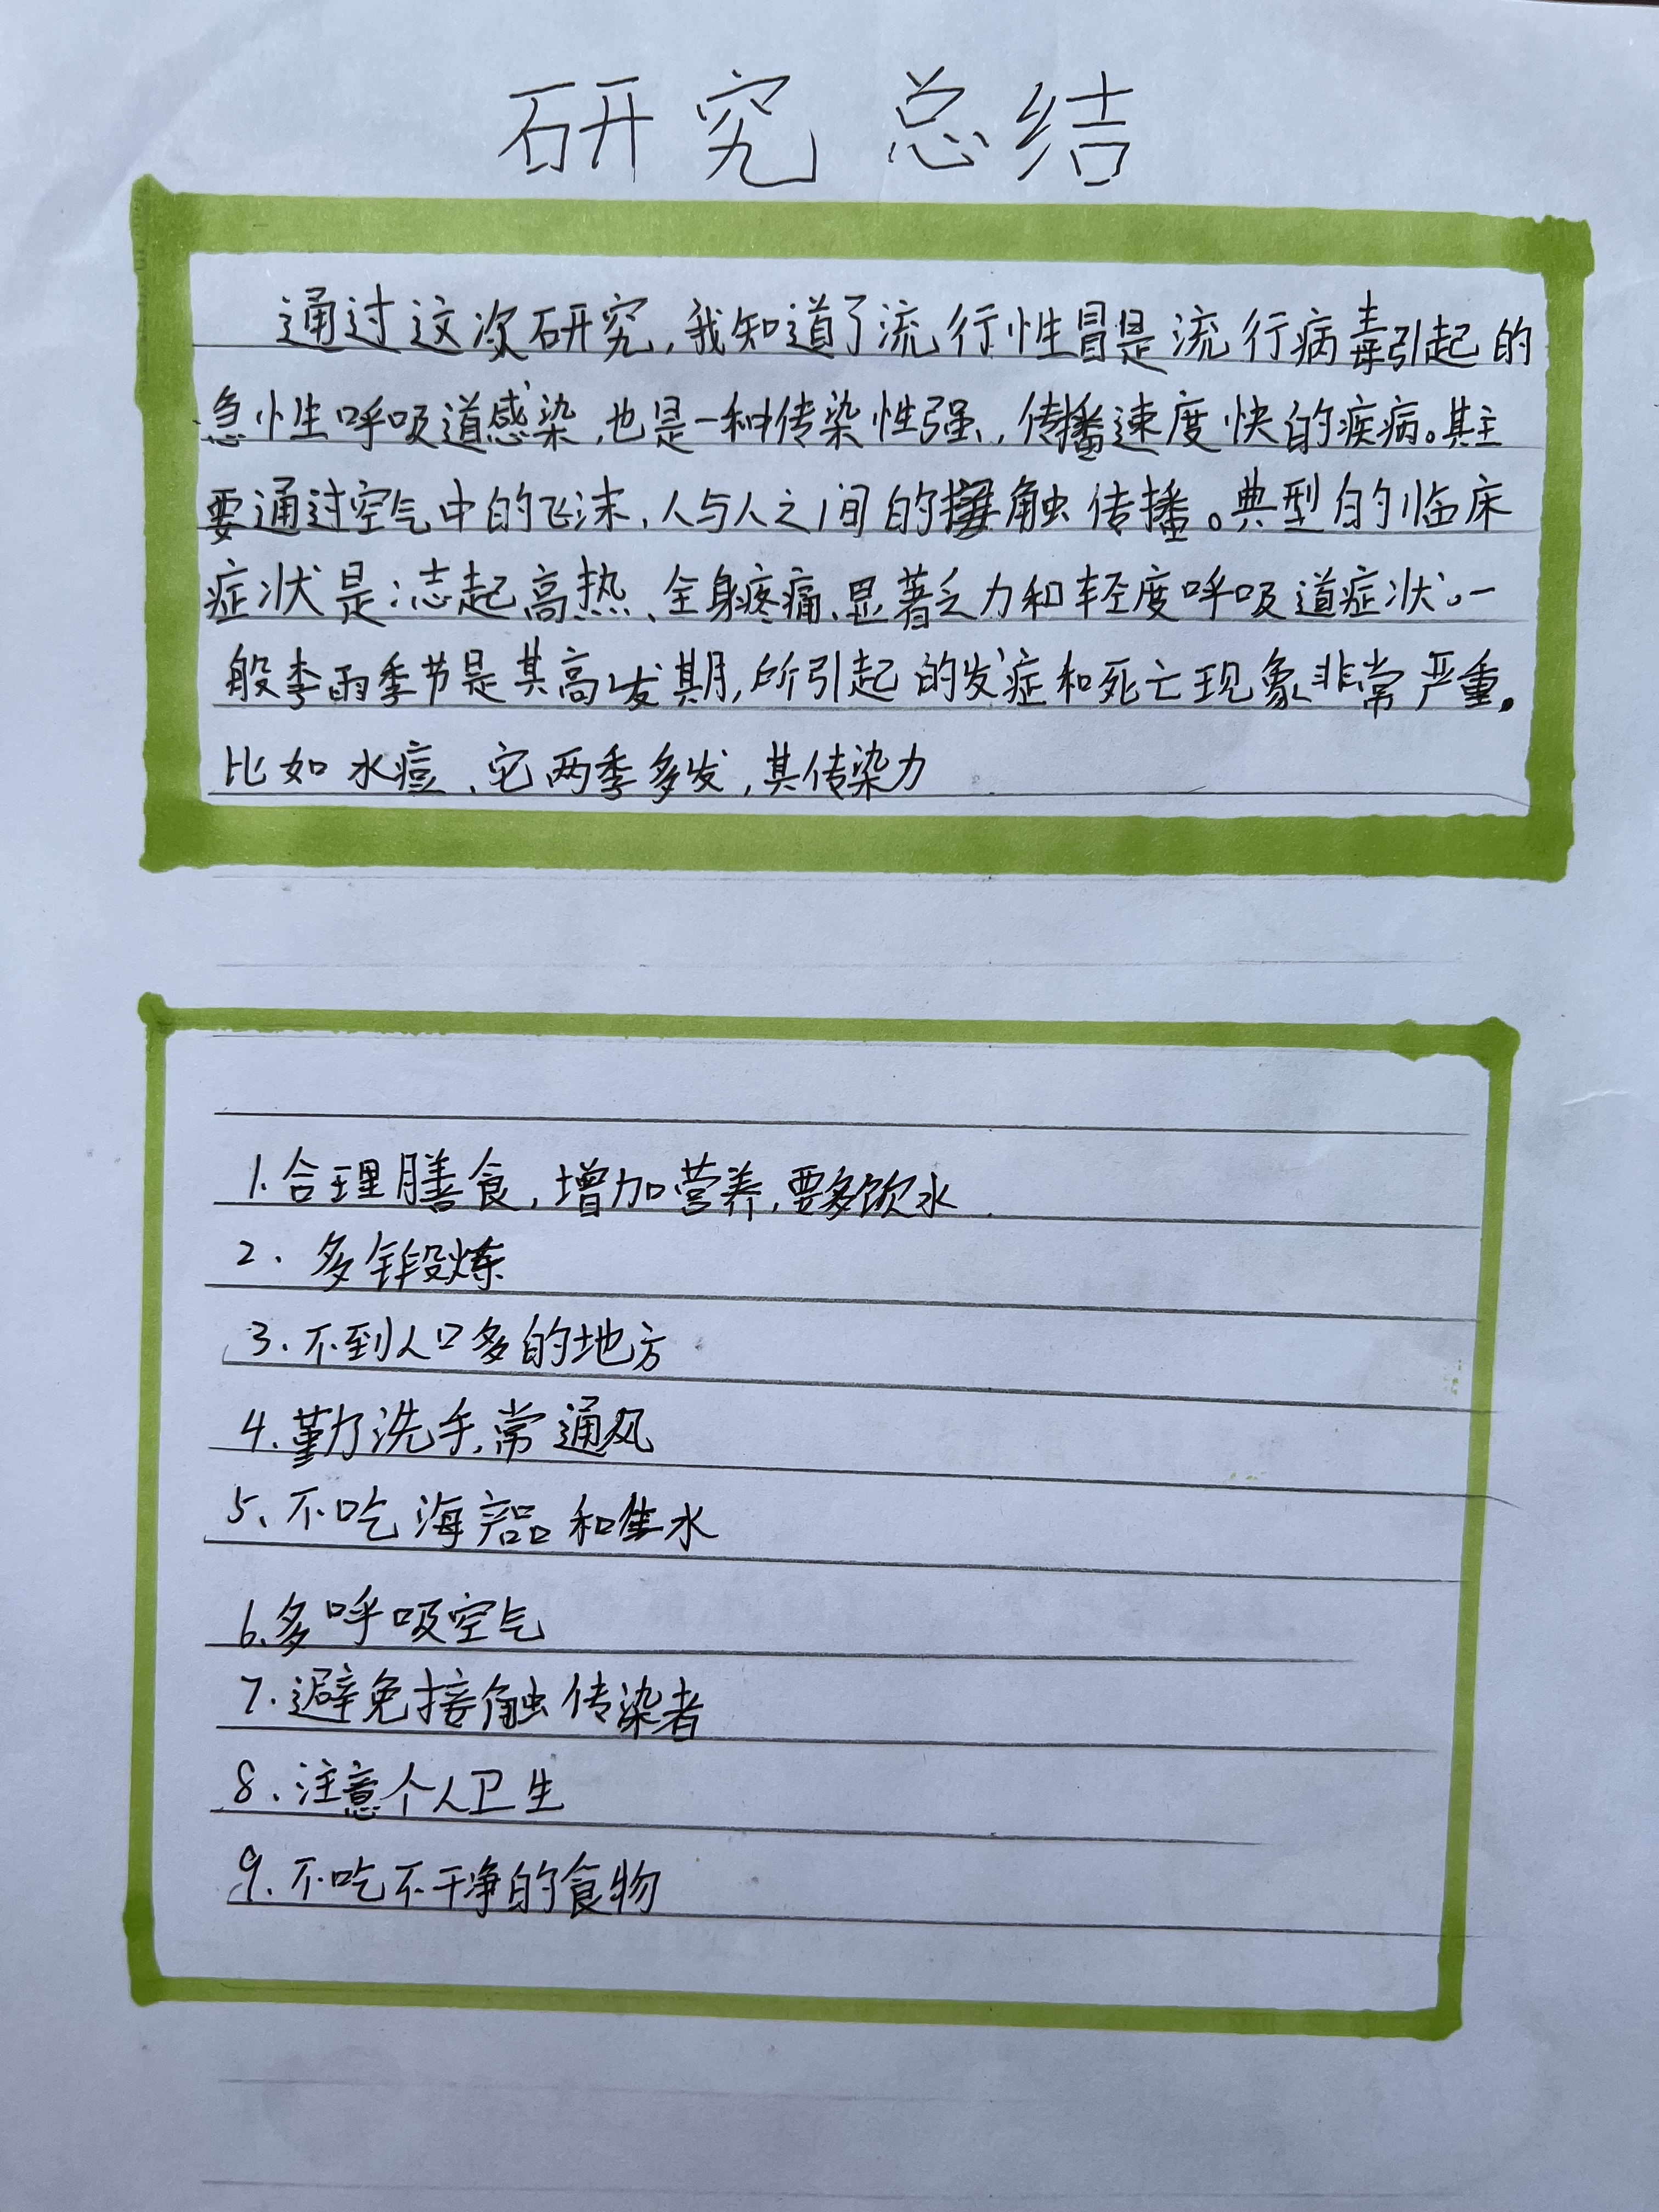 研究总结
通过这次研究,我知道了流行性冒是流行病毒引起的
急性呼吸道感染,也是一种传染性强,传播速度快的疾病。其主
要通过空气中的飞沫、人与人之间的接触传播。典型的临床
症状是:急起高热、全身疼痛、显著乏力和轻度呼吸道症状。一
般季雨季节是其高发期,所引起的发症和死亡现象非常严重。
比如水痘、它两季多发,其传染力
1.合理膳食,增加营养,要多饮水
2.多锻炼
3.不到人口多的地方
4.勤洗手,常通风
5、不吃海产品和生水
6.多呼吸空气
7.避免接触传染者
8、注意个人卫生
9.不吃不干净的食物